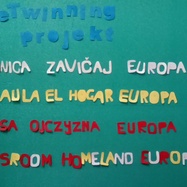 eTwinning
projekt
NICA ZAVIČAJ EUROPA
AULA EL HOGAR EUROPA
SA OJCZYZNA EUROPA
SROOM HOMELAND EUROP